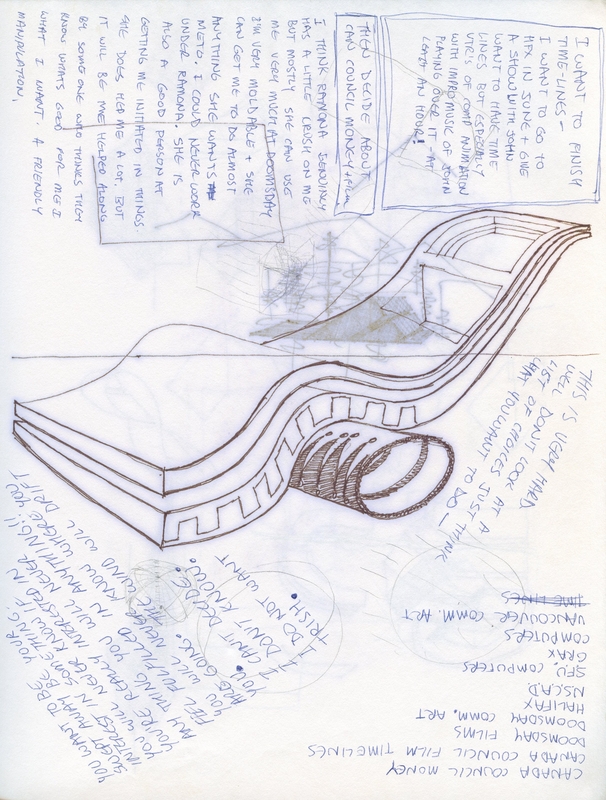 I WANT TO FINISH
TIME-LINES -
I WANT TO GO TO
HFX IN JUNE + GIVE
A SHOW WITH JOHN
WANT TO HAVE TIME
LINES BUT ESPECIALLY
VTR'S OF COMP ANIMATION
WITH IMPRO MUSIC OF JOHN
PLAYING OVER IT AT
LEAST AN HOUR!
THEN DECIDE ABOUT
CAN COUNCIL MONEY + FILM
I THINK RAMONA GENUINLY
HAS A LITTLE CRUSH ON ME
BUT MOSTLY SHE CAN USE
ME VERY MUCH AT DOOMSDAY
I'M VERY MOLDABLE + SHE
CAN GET ME TO DO ALMOST
ANYTHING SHE WANTS
ME TO, I COULD NEVER WORK
UNDER RAMONA. SHE IS
ALSO A GOOD PERSON AT
GETTING ME INITIATED IN THINGS.
SHE DOES HELP ME A LOT, BUT
IT WILL BE ME HELPED ALONG
BY SOMEONE WHO THINKS THEY
KNOW WHATS GOOD FOR ME I
WHAT I WANT. A FRIENDLY
MANIPULATION.
THIS IS VERY HARD
WELL DON'T LOOK AT A
LIST OF CHOICES JUST THINK
WHAT YOU WANT TO DO -
I DO NOT WANT
TRISH.
I DON'T KNOW.
I CAN'T DECIDE.
YOU WANT TO BE YOUNG.
INTEREST IN SOMETHING.
SWEPT AWAY
YOU WILL NEVER KNOW IF
YOU'RE REALLY INTERESTED IN
ANYTHING YOU WILL NEVER
FEEL FULFILLED IN ANYTHING!!
YOU WILL NEVER KNOW WHERE YOU
ARE GOING. THE WIND WILL DRIFT
YOU.
CANADA COUNCIL MONEY
CANADA COUNCIL FILM TIMELINES
DOOMSDAY FILMS
DOOMSDAY COMM. ART
HALIFAX
N.S.C.A.D.
S.F.U. COMPUTERS
GRAX
COMPUTERS
VANCOUVER COMM. ART
TIME LINES